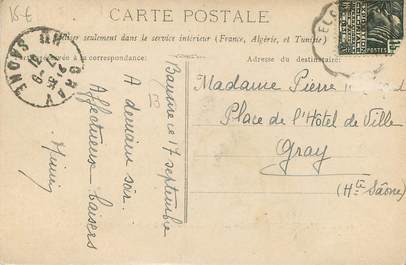 15-€
CARTE POSTALE
utiliser seulement dans le service intérieur (France, Algérie, et Tunisie)
Partie réservée à la correspondance.
Adresse du destinataire.
ce 17 septembre
A demain soir.
Affectueux baisers
Mimi
Madame Pierre
Place de l'Hôtel de Ville
Gray
(Hte Saône)
GRAY
Hte SAONE
POSTES